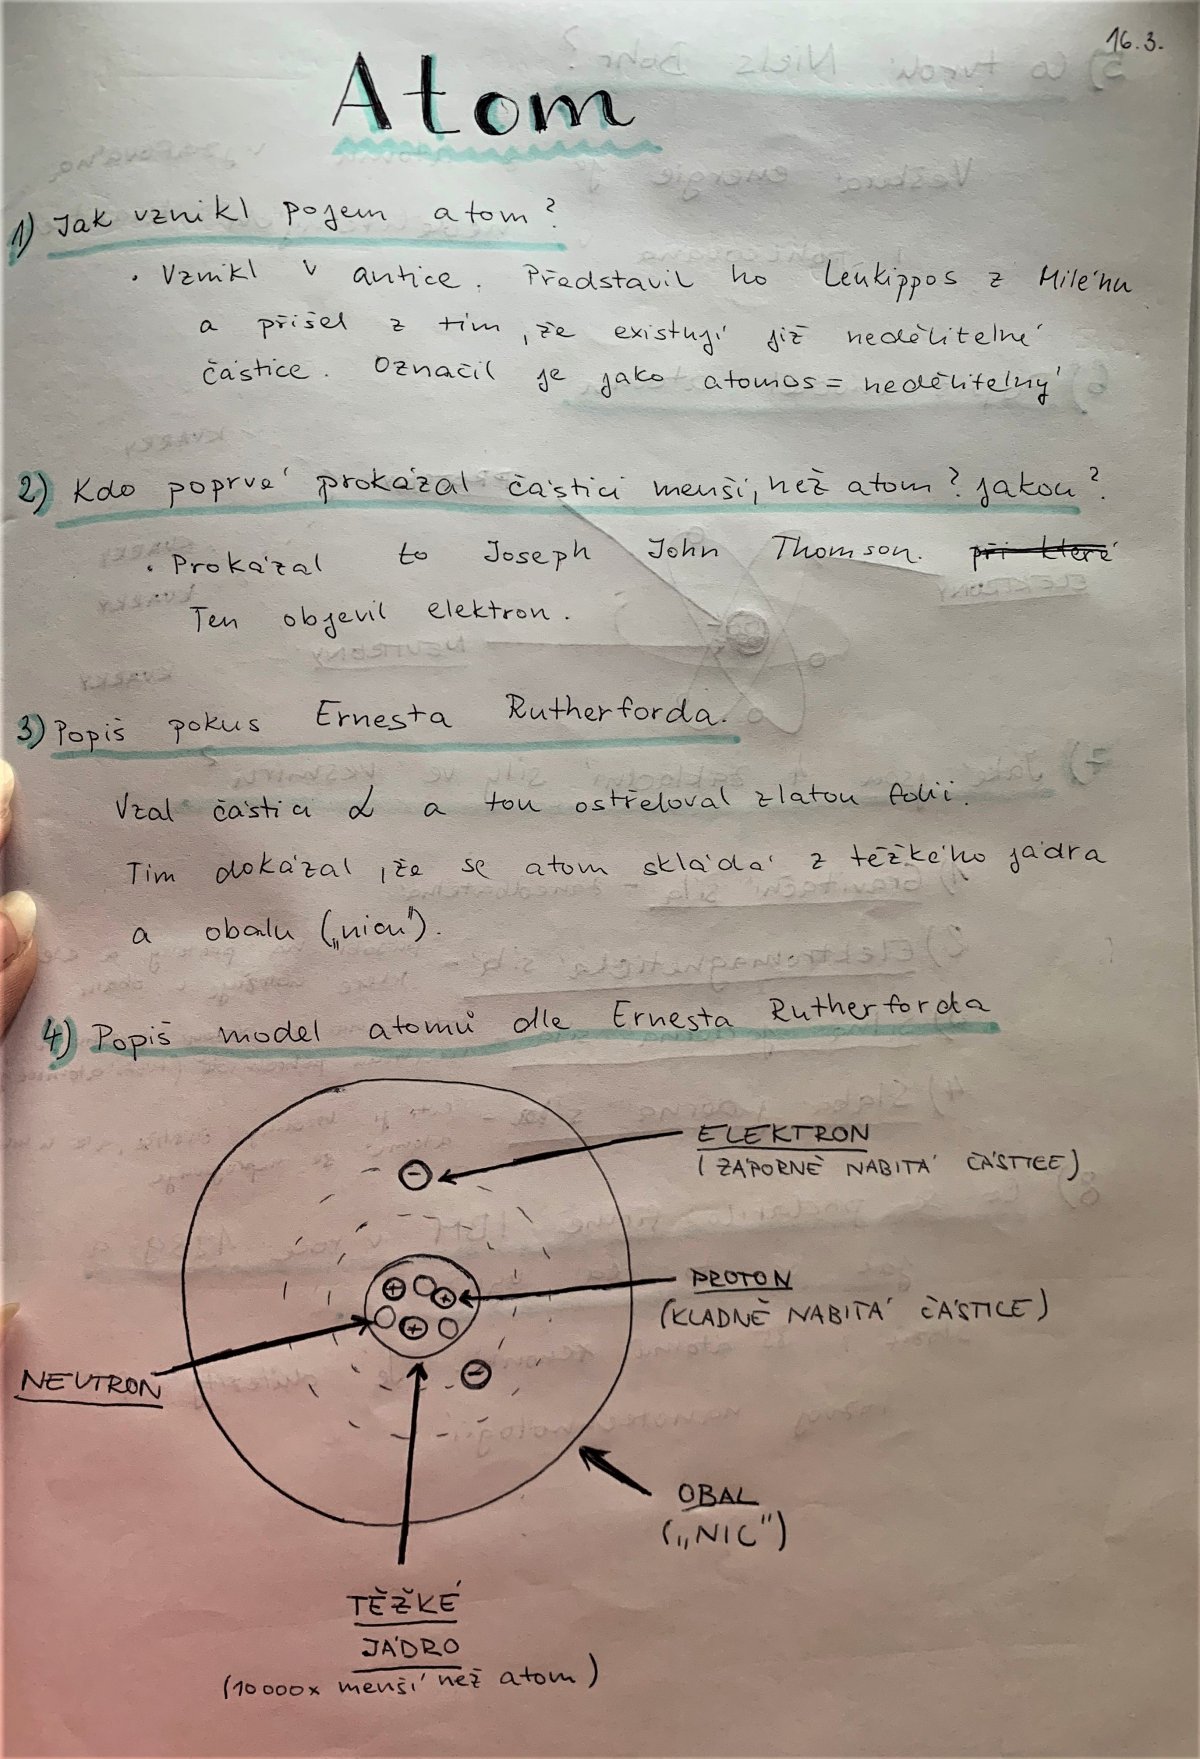 16.3.
Atom
1) Jak vznikl pojem atom?
• Vznikl v antice. Představil ho Leukippos z Milénu
a přišel z tím, že existují již nedělitelné
částice. Označil je jako atomos = nedělitelný
2) Kdo poprvé prokázal částici menší, než atom? jakou?
• Prokázal to Joseph John Thomson. při které
Ten objevil elektron.
3) Popiš pokus Ernesta Rutherforda.
Vzal částici α a tou ostřeloval zlatou folii.
Tím dokázal, že se atom skládá z těžkého jádra
a obalu („nicu").
4) Popiš model atomů dle Ernesta Rutherforda
ELEKTRON
(ZÁPORNĚ NABITÁ ČÁSTICE)
PROTON
(KLADNĚ NABITÁ ČÁSTICE)
NEUTRON
OBAL
(„NIC")
TĚŽKÉ
JÁDRO
(10000x menší než atom)